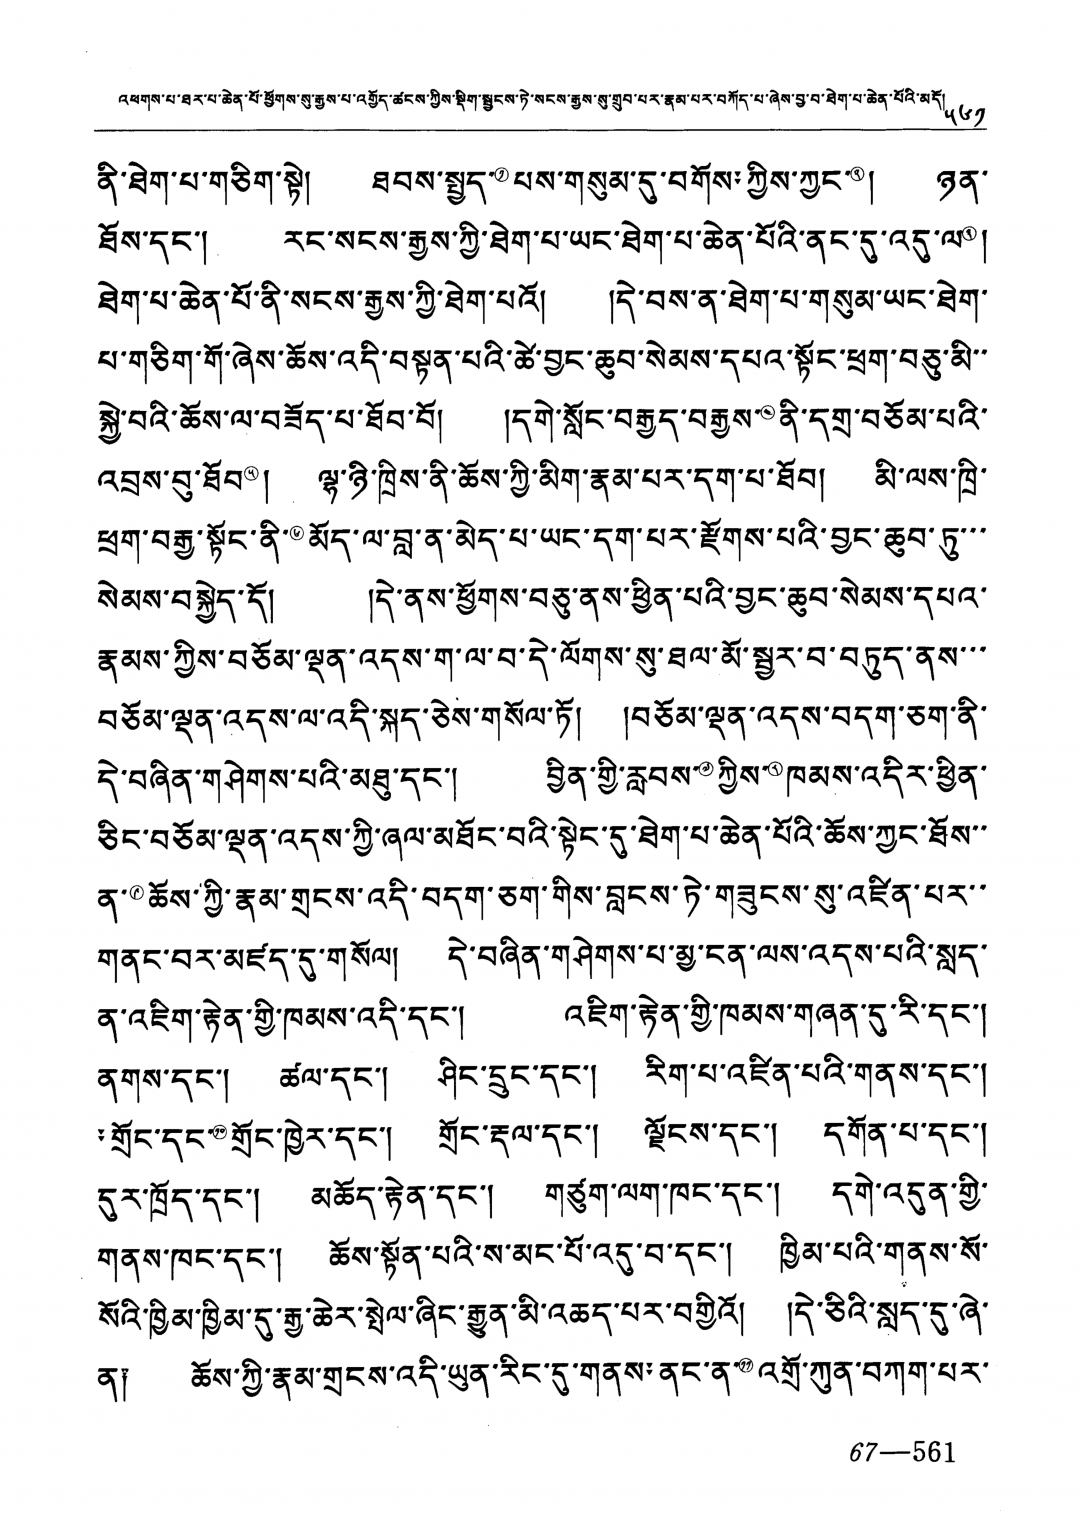 འཕགས་པ་ཐར་པ་ཆེན་པོ་ཕྱོགས་སུ་རྒྱས་པ་འགྱོད་ཚངས་ཀྱིས་སྡིག་སྦྱངས་ཏེ་སངས་རྒྱས་སུ་གྲུབ་པར་རྣམ་པར་བཀོད་པ་ཞེས་བྱ་བ་ཐེག་པ་ཆེན་པོའི་མདོ། ༥༦༡
ནི་ཐེག་པ་གཅིག་སྟེ། ཐབས་སྤྱད་①པས་གསུམ་དུ་བགོས༌ཀྱིས་ཀྱང་②། ཉན་
ཐོས་དང་། རང་སངས་རྒྱས་ཀྱི་ཐེག་པ་ཡང་ཐེག་པ་ཆེན་པོའི་ནང་དུ་འདུ་ལ③།
ཐེག་པ་ཆེན་པོ་ནི་སངས་རྒྱས་ཀྱི་ཐེག་པའོ། །དེ་བས་ན་ཐེག་པ་གསུམ་ཡང་ཐེག་
པ་གཅིག་གོ་ཞེས་ཆོས་འདི་བསྟན་པའི་ཚེ་བྱང་ཆུབ་སེམས་དཔའ་སྟོང་ཕྲག་བཅུ་མི་་
སྐྱེ་བའི་ཆོས་ལ་བཟོད་པ་ཐོབ་བོ། །དགེ་སློང་བརྒྱད་བརྒྱས་④ནི་དགྲ་བཅོམ་པའི་
འབྲས་བུ་ཐོབ⑤། ལྷ་ཉི་ཁྲིས་ནི་ཆོས་ཀྱི་མིག་རྣམ་པར་དག་པ་ཐོབ། མི་ལས་ཁྲི་
ཕྲག་བརྒྱ་སྟོང་ནི་⑥མོད་ལ་བླ་ན་མེད་པ་ཡང་དག་པར་རྫོགས་པའི་བྱང་ཆུབ་ཏུ་་་
སེམས་བསྐྱེད་དོ། །དེ་ནས་ཕྱོགས་བཅུ་ནས་ཕྱིན་པའི་བྱང་ཆུབ་སེམས་དཔའ་
རྣམས་ཀྱིས་བཅོམ་ལྡན་འདས་ག་ལ་བ་དེ་ལོགས་སུ་ཐལ་མོ་སྦྱར་བ་བཏུད་ནས་་་
བཅོམ་ལྡན་འདས་ལ་འདི་སྐད་ཅེས་གསོལ་ཏོ། །བཅོམ་ལྡན་འདས་བདག་ཅག་ནི་
དེ་བཞིན་གཤེགས་པའི་མཐུ་དང་། བྱིན་གྱི་རླབས་⑦ཀྱིས་⑧ཁམས་འདིར་ཕྱིན་
ཅིང་བཅོམ་ལྡན་འདས་ཀྱི་ཞལ་མཐོང་བའི་སྟེང་དུ་ཐེག་པ་ཆེན་པོའི་ཆོས་ཀྱང་ཐོས་་
ན་⑨ཆོས་ཀྱི་རྣམ་གྲངས་འདི་བདག་ཅག་གིས་བླངས་ཏེ་གཟུངས་སུ་འཛིན་པར་་
གནང་བར་མཛད་དུ་གསོལ། དེ་བཞིན་གཤེགས་པ་མྱ་ངན་ལས་འདས་པའི་སླད་
ན་འཇིག་རྟེན་གྱི་ཁམས་འདི་དང་། འཇིག་རྟེན་གྱི་ཁམས་གཞན་དུ་རི་དང་།
ནགས་དང་། ཚལ་དང་། ཤིང་དྲུང་དང་། རིག་པ་འཛིན་པའི་གནས་དང་།
༌གྲོང་དང་⑩གྲོང་ཁྱེར་དང་། གྲོང་རྡལ་དང་། ལྗོངས་དང་། དགོན་པ་དང་།
དུར་ཁྲོད་དང་། མཆོད་རྟེན་དང་། གཙུག་ལག་ཁང་དང་། དགེ་འདུན་གྱི་
གནས་ཁང་དང་། ཆོས་སྟོན་པའི་ས་མང་པོ་འདུ་བ་དང་། ཁྱིམ་པའི་གནས་སོ་
སོའི་ཁྱིམ་ཁྱིམ་དུ་རྒྱ་ཆེར་སྤེལ་ཞིང་རྒྱུན་མི་འཆད་པར་བགྱིའོ། །དེ་ཅིའི་སླད་དུ་ཞེ་
ན༑ ཆོས་ཀྱི་རྣམ་གྲངས་འདི་ཡུན་རིང་དུ་གནས༌ནང་ན་⑪འགྲོ་ཀུན་བཀག་པར་
67—561